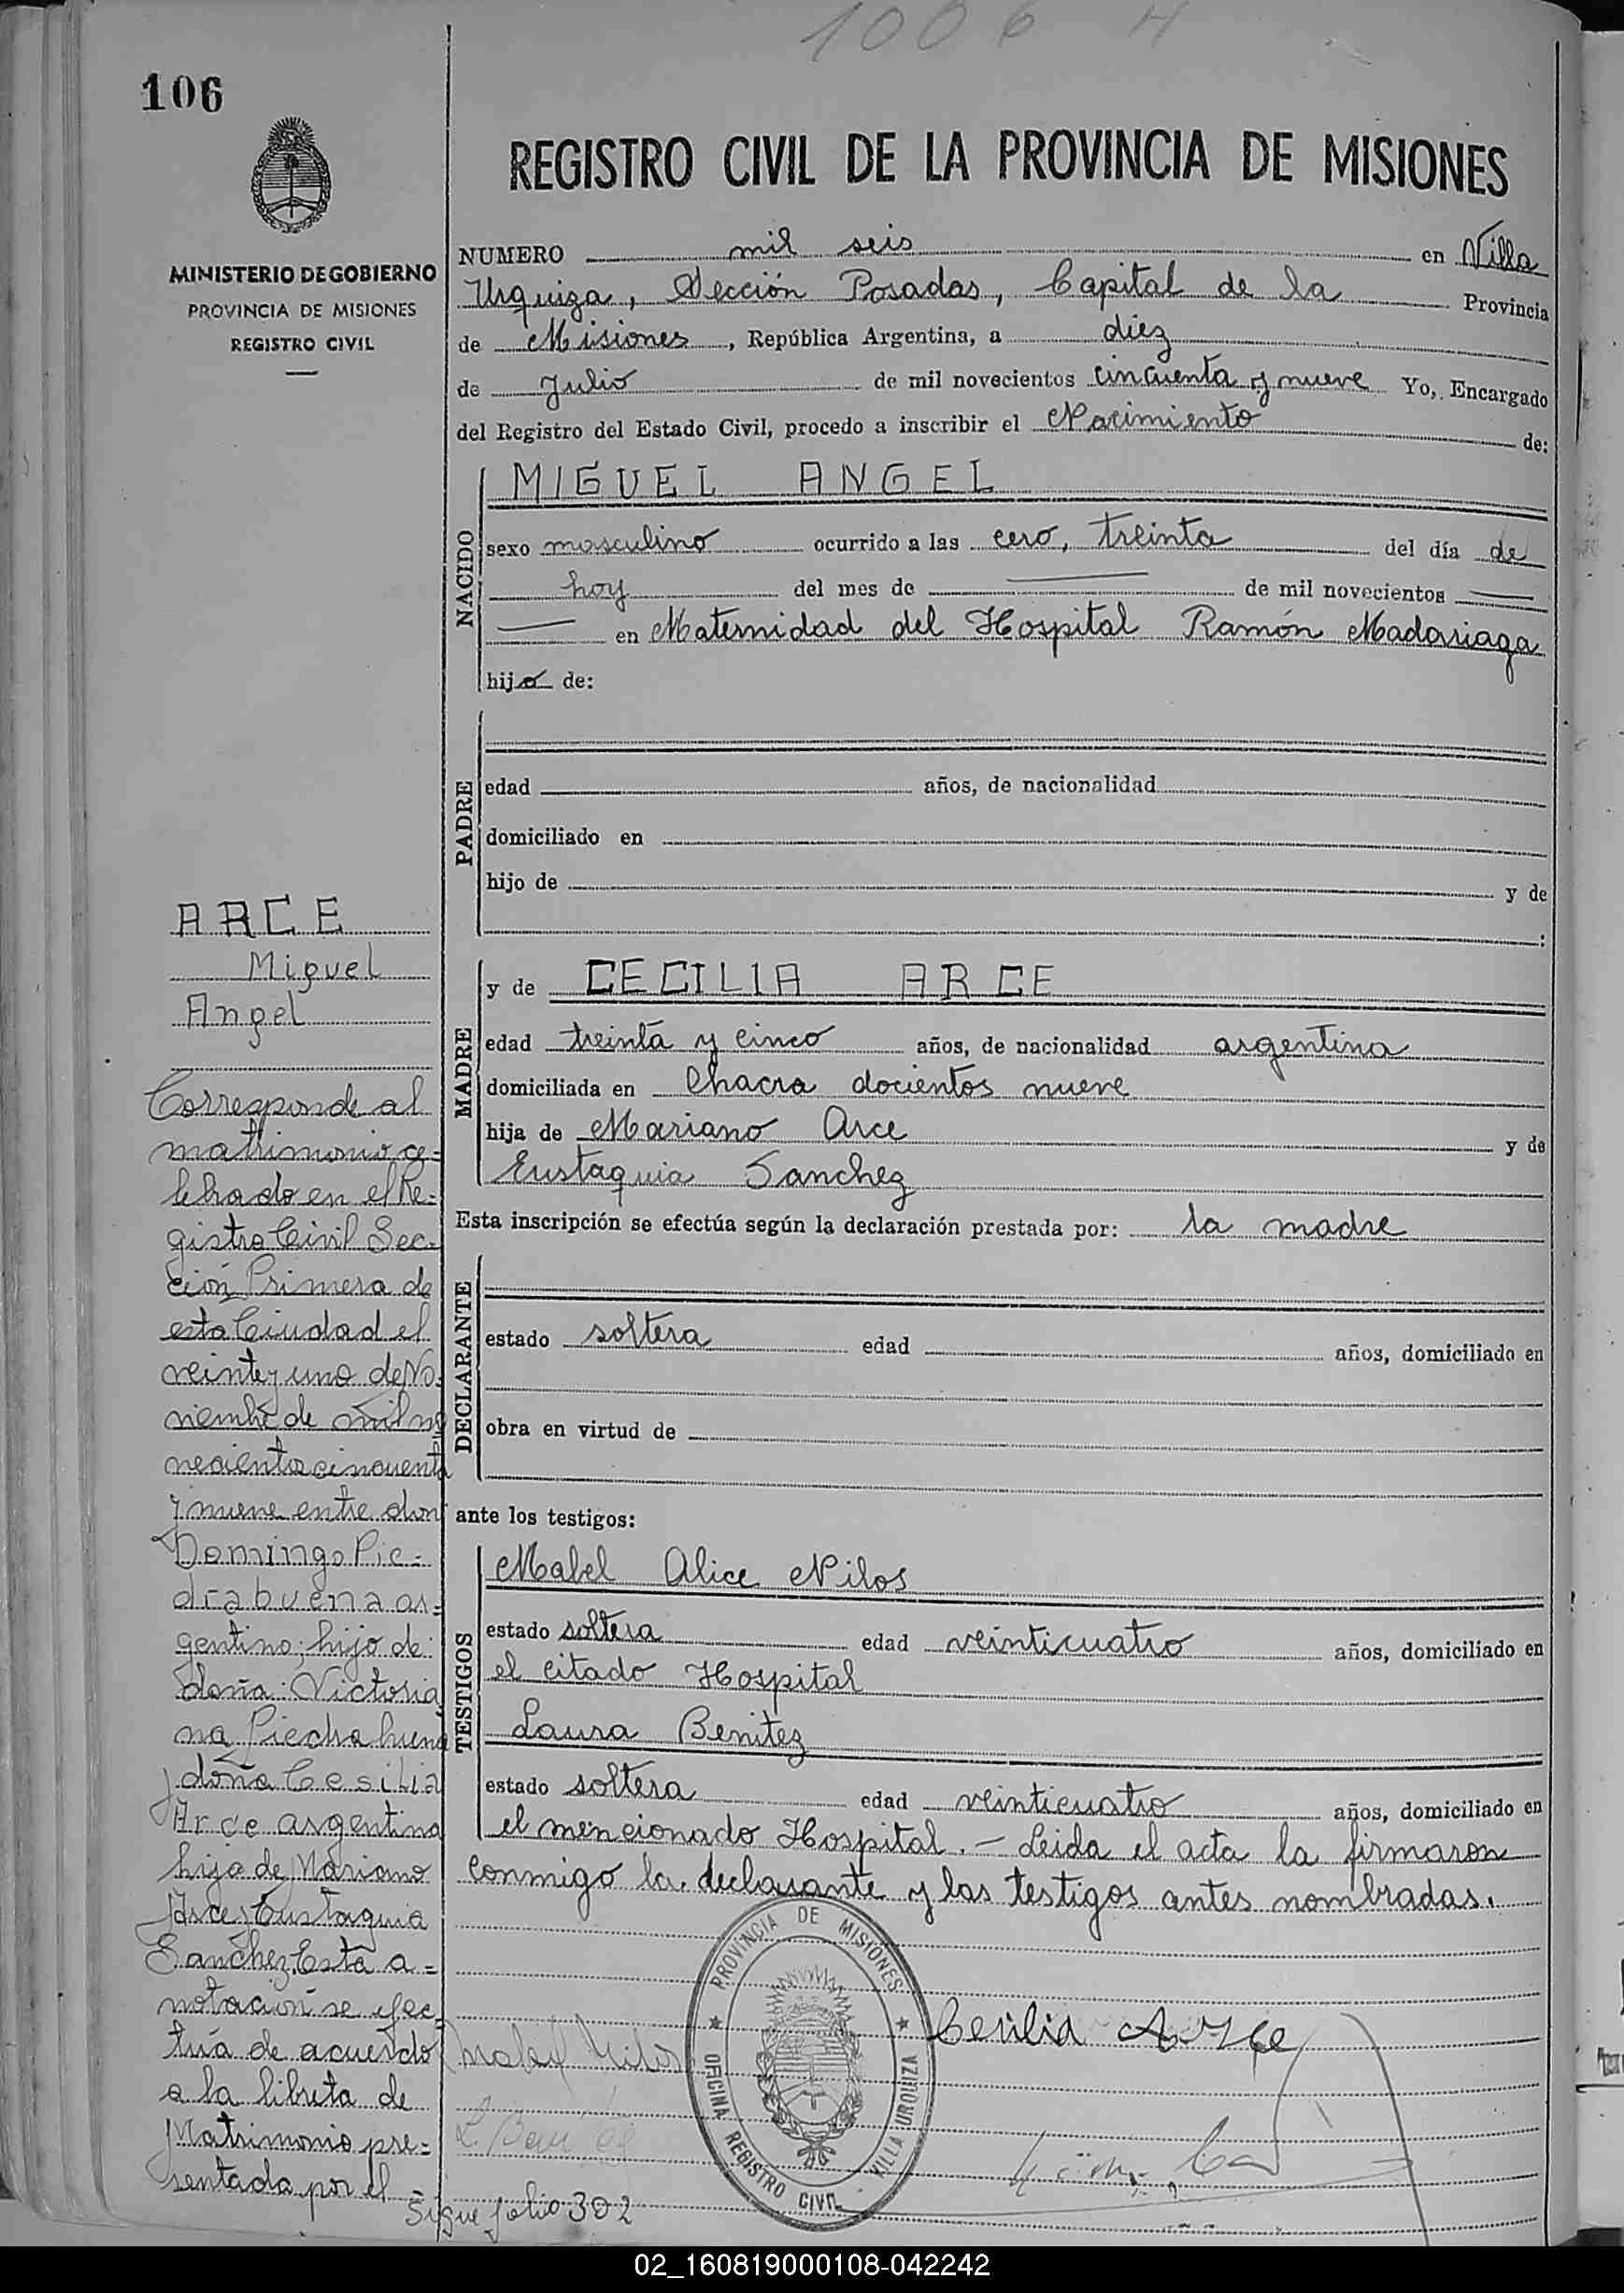 1006 H
106
MINISTERIO DE GOBIERNO
PROVINCIA DE MISIONES
REGISTRO CIVIL
REGISTRO CIVIL DE LA PROVINCIA DE MISIONES
NUMERO mil seis en Villa
Urquiza, Sección Posadas, Capital de la Provincia
de Misiones, República Argentina, a diez
de Julio de mil novecientos cincuenta y nueve Yo, Encargado
del Registro del Estado Civil, procedo a inscribir el Nacimiento de:
NACIDO
MIGUEL ANGEL
sexo masculino ocurrido a las cero, treinta del día de
hoy del mes de — de mil novecientos —
— en Maternidad del Hospital Ramón Madariaga
hijo de:
PADRE
edad años, de nacionalidad
domiciliado en
hijo de y de
:
MADRE
y de CECILIA ARCE
edad treinta y cinco años, de nacionalidad argentina
domiciliada en Chacra docientos nueve
hija de Mariano Arce y de
Eustaquia Sanchez
Esta inscripción se efectúa según la declaración prestada por: la madre
DECLARANTE
estado soltera edad años, domiciliado en
obra en virtud de
ante los testigos:
TESTIGOS
Mabel Alice Nilos
estado soltera edad veinticuatro años, domiciliado en
el citado Hospital
Laura Benitez
estado soltera edad veinticuatro años, domiciliado en
el mencionado Hospital.- Leida el acta la firmaron
conmigo la declarante y las testigos antes nombradas.
ARCE
Miguel
Angel
Corresponde al
matrimonio ce=
lebrado en el Re=
gistro Civil Sec=
ción Primera de
esta Ciudad el
veinte y uno de No=
viembre de mil no
vecientos cincuenta
y nueve entre don
Domingo Pie=
drabuena ar=
gentino; hijo de:
doña: Victoria
na Piedrabuena
y doña Cesilia
Arce argentina
hija de Mariano
Arce y Eustaquia
Sanchez. Esta a=
notación se efec
túa de acuerdo
a la libreta de
Matrimonio pre=
sentada por el =
Sigue folio 302
Mabel Nilos
Cecilia Arce
PROVINCIA DE MISIONES
OFICINA REGISTRO CIVIL VILLA URQUIZA
02_160819000108-042242